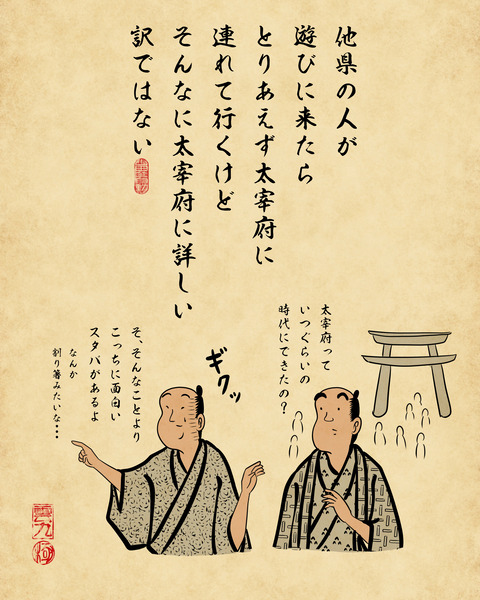 他県の人が
遊びに来たら
とりあえず太宰府に
連れて行くけど
そんなに太宰府に詳しい
訳ではない
太宰府って
いつぐらいの
時代にできたの？
ギクッ
そ、そんなことより
こっちに面白い
スタバがあるよ
なんか
割り箸みたいな…